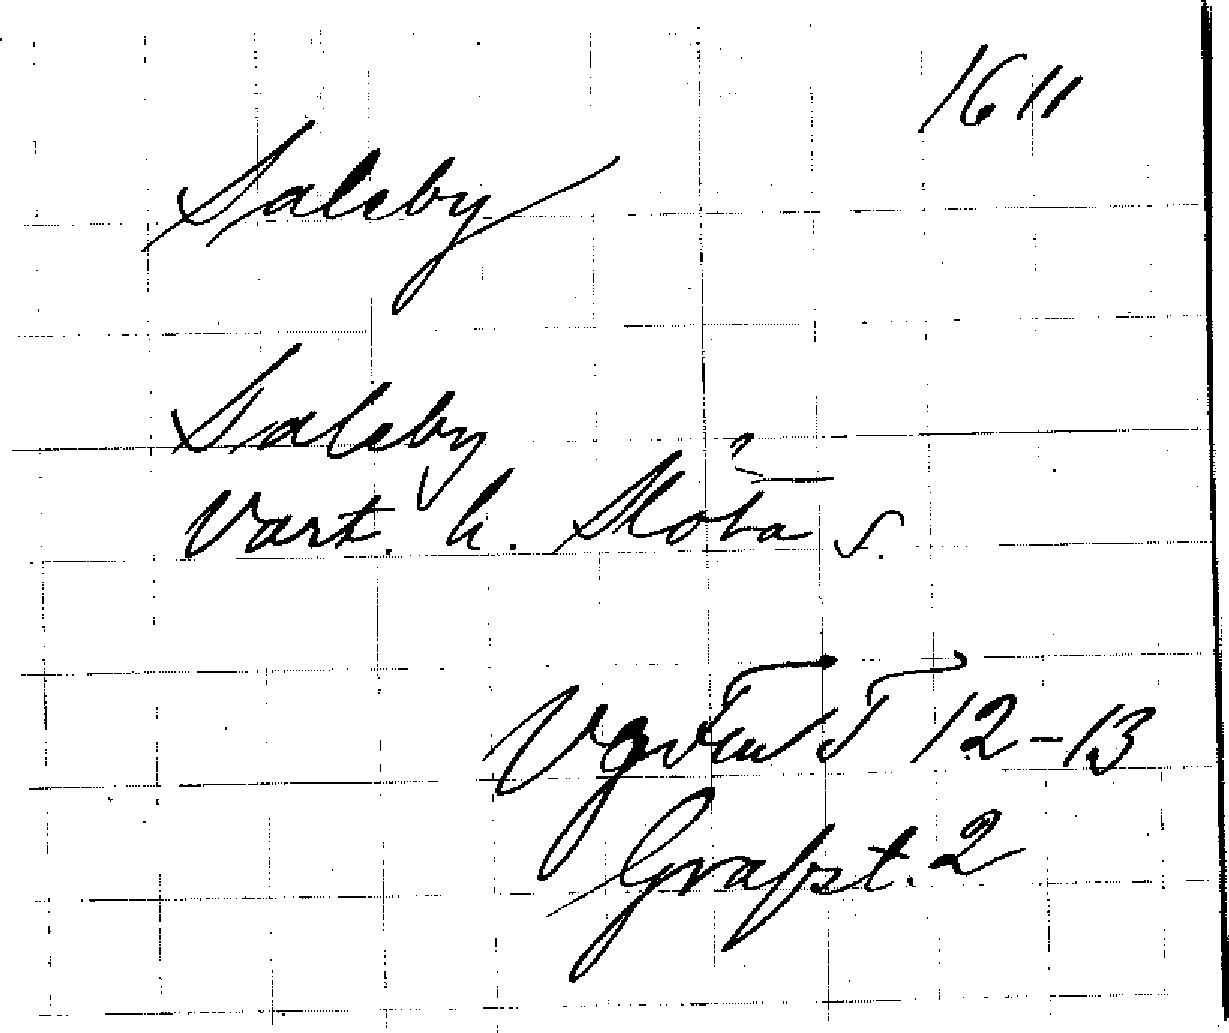 1611
Saleby
Saleby
Vart. h. Sköta s.
Vg Fm T 12-13
Grafst. 2